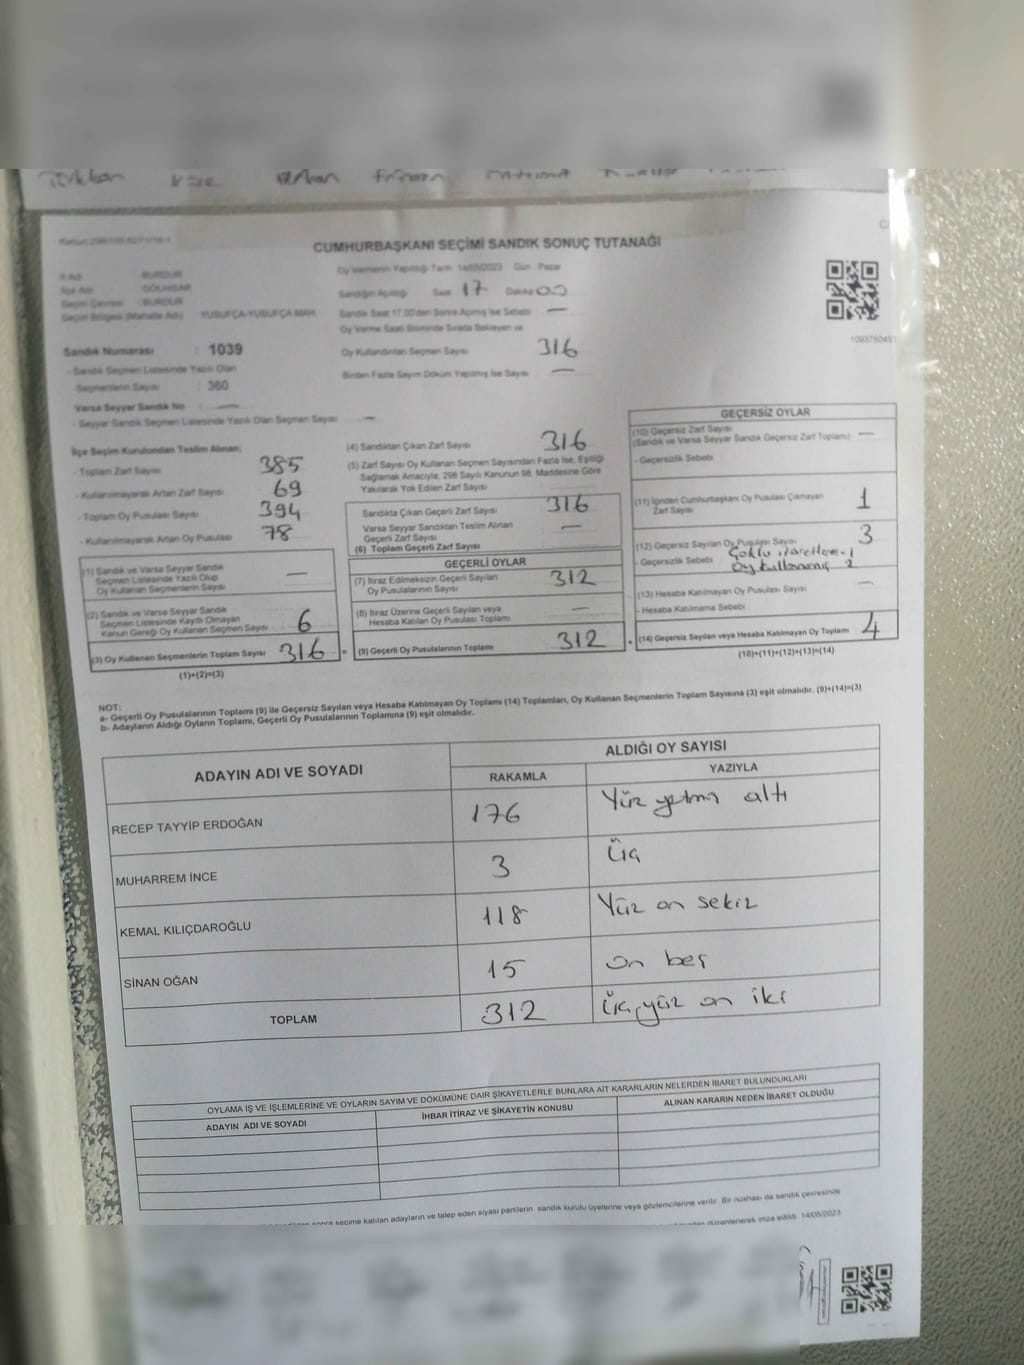 CUMHURBAŞKANI SEÇİMİ SANDIK SONUÇ TUTANAĞI
Oy Vermenin Yapıldığı Tarih 14/05/2023 Gün Pazar
İl Adı : BURDUR
İlçe Adı : GÖLHİSAR
Seçim Çevresi : BURDUR
Seçim Bölgesi (Mahalle Adı) YUSUFÇA-YUSUFÇA MAH.
Sandığın Açıldığı Saat 17 Dakika 00
Sandık Saat 17.00'den Sonra Açılmış İse Sebebi —
Oy Verme Saati Bitiminde Sırada Bekleyen ve
Oy Kullandırılan Seçmen Sayısı 316
Birden Fazla Sayım Döküm Yapılmış İse Sayısı —
Sandık Numarası : 1039
- Sandık Seçmen Listesinde Yazılı Olan
Seçmenlerin Sayısı : 360
Varsa Seyyar Sandık No : —
- Seyyar Sandık Seçmen Listesinde Yazılı Olan Seçmen Sayısı —
İlçe Seçim Kurulundan Teslim Alınan;
- Toplam Zarf Sayısı 385
- Kullanılmayarak Artan Zarf Sayısı 69
- Toplam Oy Pusulası Sayısı 394
- Kullanılmayarak Artan Oy Pusulası 78
(1) Sandık ve Varsa Seyyar Sandık
Seçmen Listesinde Yazılı Olup
Oy Kullanan Seçmenlerin Sayısı —
(2) Sandık ve Varsa Seyyar Sandık
Seçmen Listesinde Kayıtlı Olmayan
Kanun Gereği Oy Kullanan Seçmen Sayısı 6
(3) Oy Kullanan Seçmenlerin Toplam Sayısı 316 =
(1)+(2)=(3)
(4) Sandıktan Çıkan Zarf Sayısı 316
(5) Zarf Sayısı Oy Kullanan Seçmen Sayısından Fazla İse, Eşitliği
Sağlamak Amacıyla, 298 Sayılı Kanunun 98. Maddesine Göre
Yakılarak Yok Edilen Zarf Sayısı
Sandıkta Çıkan Geçerli Zarf Sayısı 316
Varsa Seyyar Sandıktan Teslim Alınan
Geçerli Zarf Sayısı —
(6) Toplam Geçerli Zarf Sayısı
GEÇERLİ OYLAR
(7) İtiraz Edilmeksizin Geçerli Sayılan
Oy Pusulalarının Sayısı 312
(8) İtiraz Üzerine Geçerli Sayılan veya
Hesaba Katılan Oy Pusulası Toplamı —
(9) Geçerli Oy Pusulalarının Toplamı 312 +
GEÇERSİZ OYLAR
(10) Geçersiz Zarf Sayısı
(Sandık ve Varsa Seyyar Sandık Geçersiz Zarf Toplamı) —
- Geçersizlik Sebebi
(11) İçinden Cumhurbaşkanı Oy Pusulası Çıkmayan
Zarf Sayısı 1
(12) Geçersiz Sayılan Oy Pusulası Sayısı 3
- Geçersizlik Sebebi Çoklu 1
2
(13) Hesaba Katılmayan Oy Pusulası Sayısı —
- Hesaba Katılmama Sebebi
(14) Geçersiz Sayılan veya Hesaba Katılmayan Oy Toplamı 4
(10)+(11)+(12)+(13)=(14)
NOT:
a- Geçerli Oy Pusulalarının Toplamı (9) ile Geçersiz Sayılan veya Hesaba Katılmayan Oy Toplamı (14) Toplamları, Oy Kullanan Seçmenlerin Toplam Sayısına (3) eşit olmalıdır. (9)+(14)=(3)
b- Adayların Aldığı Oyların Toplamı, Geçerli Oy Pusulalarının Toplamına (9) eşit olmalıdır.
ADAYIN ADI VE SOYADI ALDIĞI OY SAYISI
RAKAMLA YAZIYLA
RECEP TAYYİP ERDOĞAN 176 Yüz yetmiş altı
MUHARREM İNCE 3 Üç
KEMAL KILIÇDAROĞLU 118 Yüz on sekiz
SİNAN OĞAN 15 on beş
TOPLAM 312 Üç yüz on iki
OYLAMA İŞ VE İŞLEMLERİNE VE OYLARIN SAYIM VE DÖKÜMÜNE DAİR ŞİKAYETLERLE BUNLARA AİT KARARLARIN NELERDEN İBARET BULUNDUKLARI
ADAYIN ADI VE SOYADI İHBAR İTİRAZ VE ŞİKAYETİN KONUSU ALINAN KARARIN NEDEN İBARET OLDUĞU
sonra seçime katılan adayların ve talep eden siyasi partilerin sandık kurulu üyelerine veya gözlemcilerine verilir. Bir nüshası da sandık çevresinde
düzenlenerek imza edildi. 14/05/2023